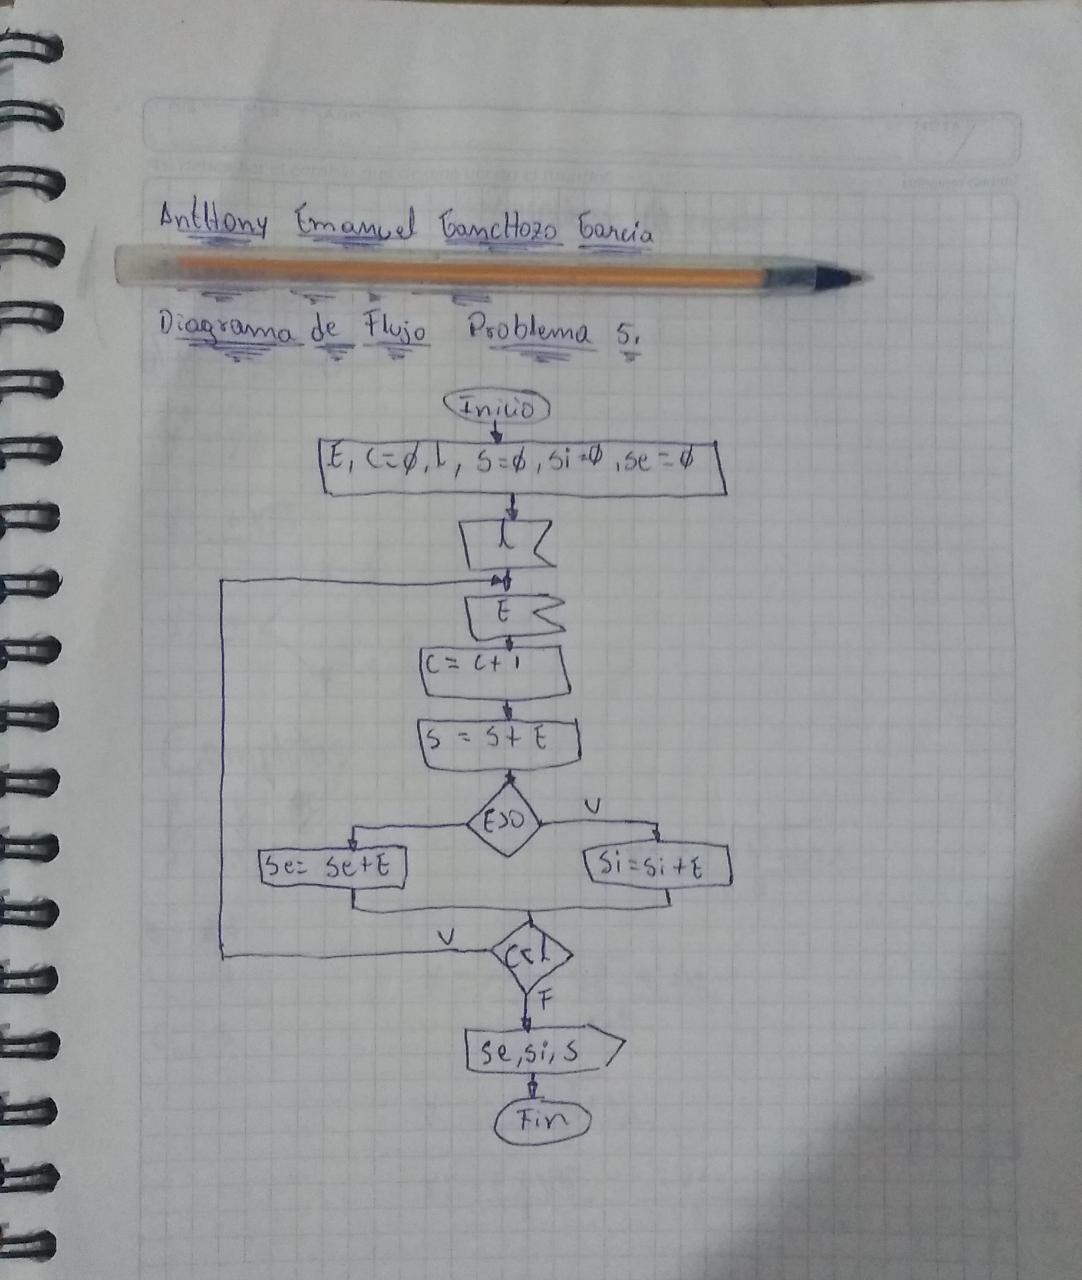 AntHony Emanuel GancHozo García
Diagrama de Flujo Problema 5.
Inicio
E, C=ø, l, S=ø, Si=ø, Se=ø
l
E
C = C+1
S = S+E
E>0
V
Se= Se+E
Si=Si+E
V
C<l
F
Se, Si, S
Fin